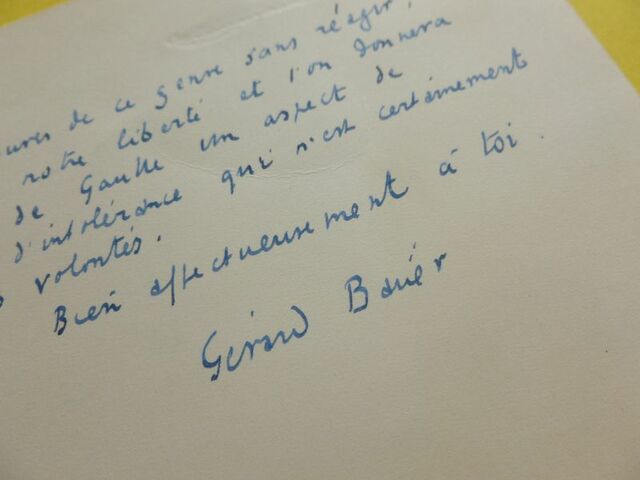 de ce genre sans réagir,
notre liberté et l'on donnera
de Gaulle un aspect de
d'intolérance qui n'est certainement
volontés.
Bien affectueusement à toi.
Gérard Bauër